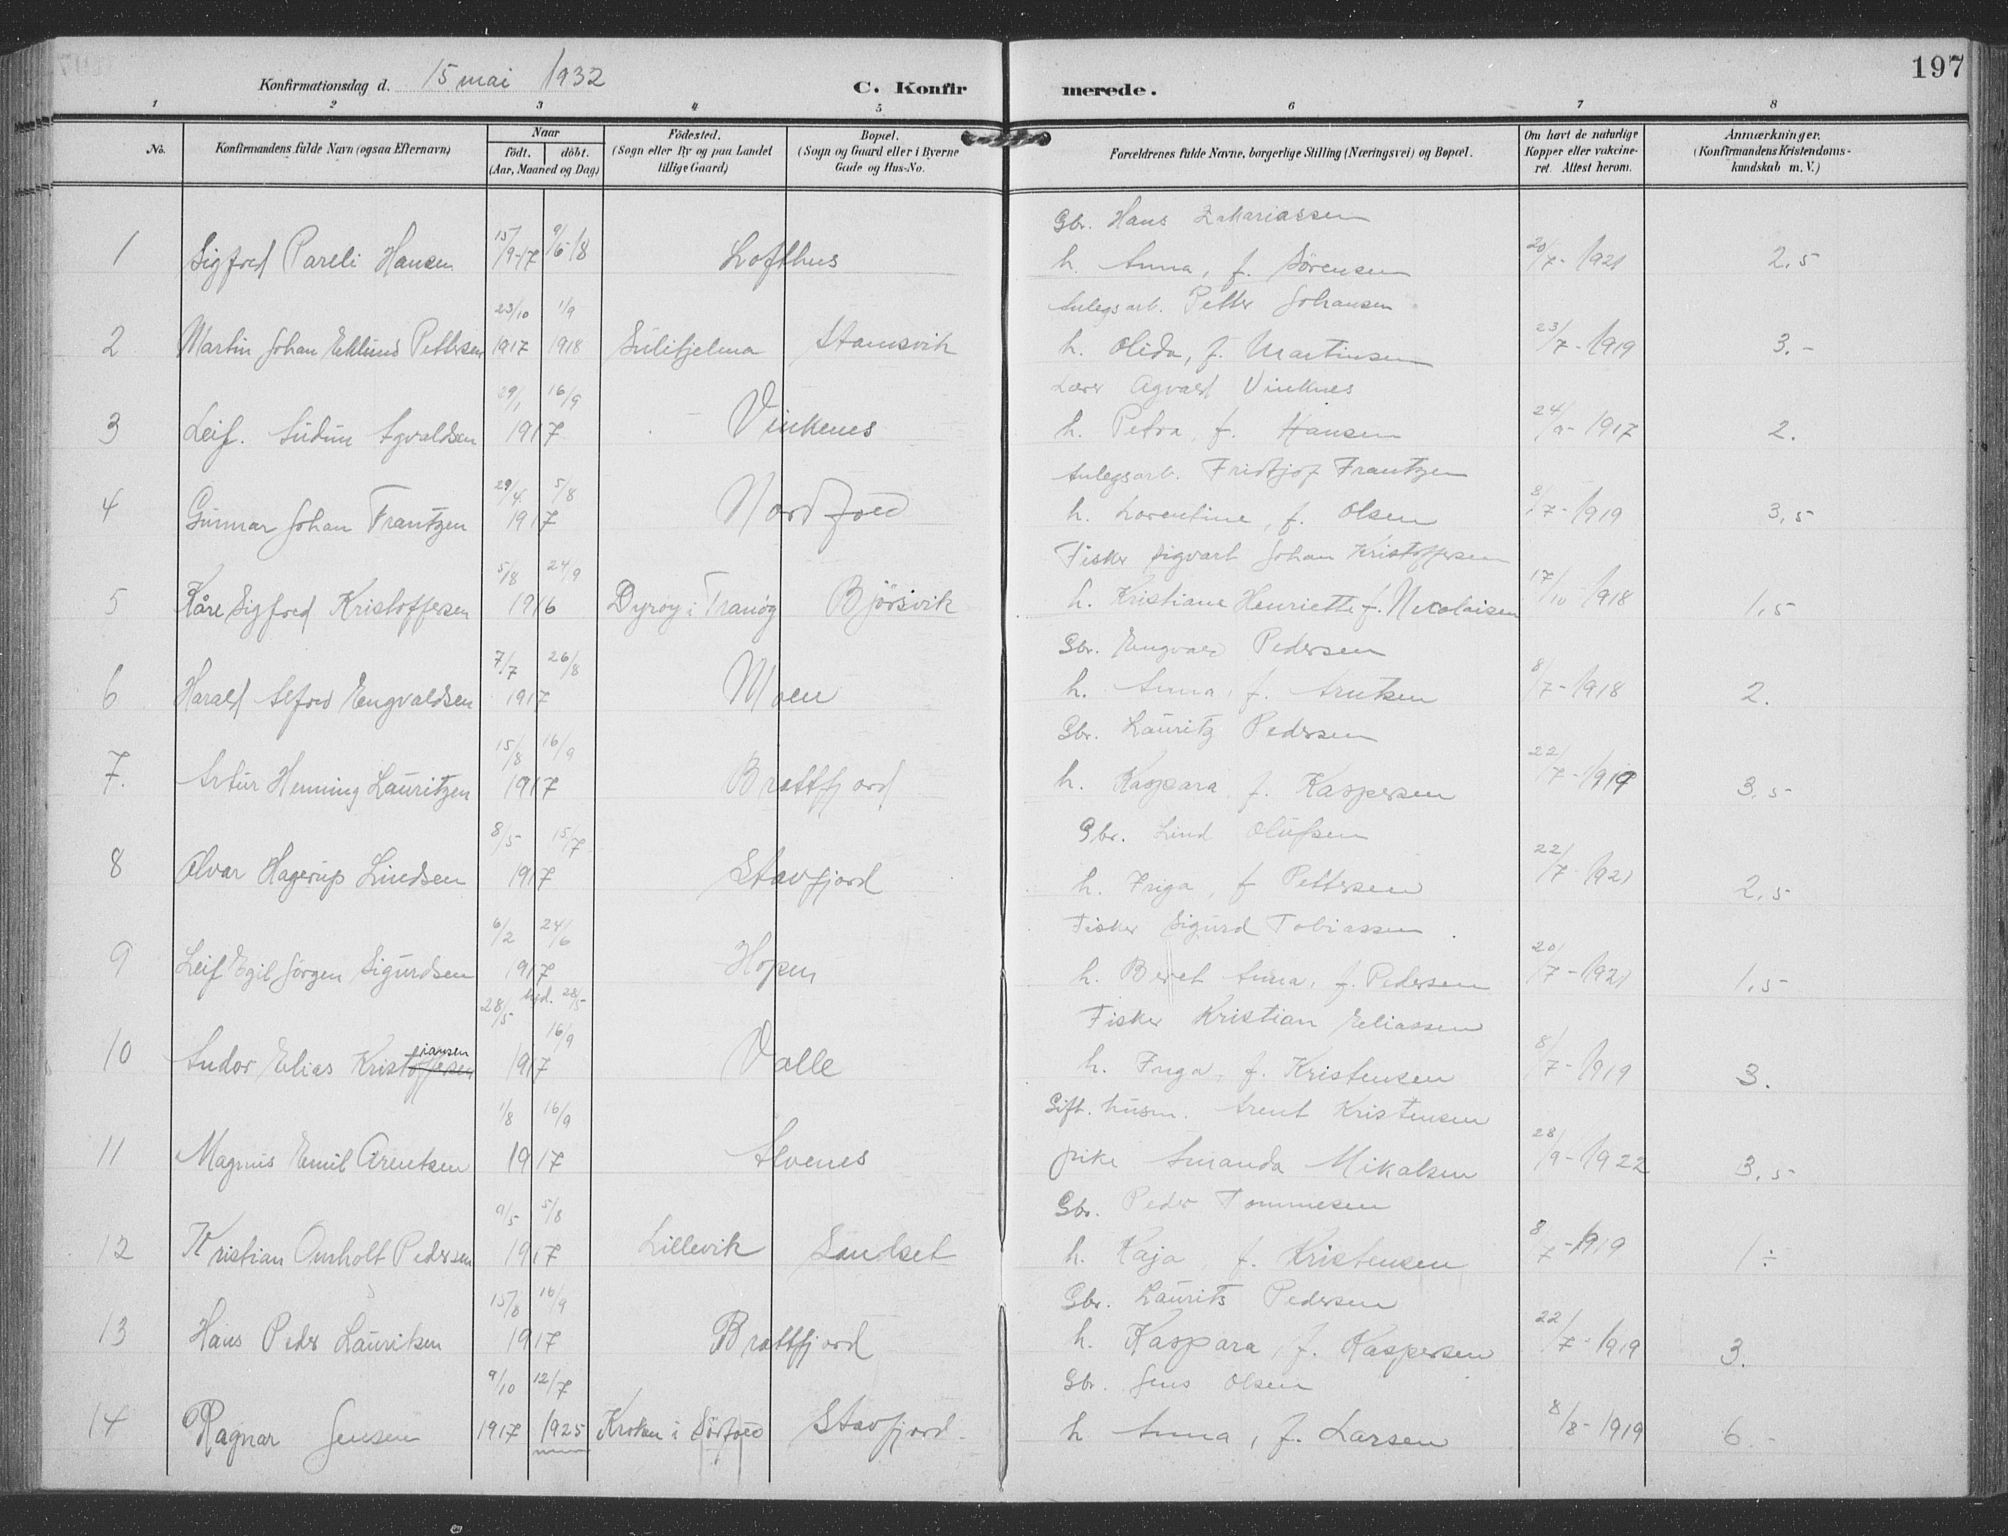 197
Konfirmationsdag d. 15 mai 1932 C. Konfirmerede.
1 2 3 4 5 6 7 8
No. Konfirmandens fulde Navn (ogsaa Efternavn) Naar født. døbt. (Aar, Maaned og Dag) Fødested. (Sogn eller By og paa Landet tillige Gaard) Bopæl. (Sogn og Gaard eller i Byerne Gade og Hus-No. Forældrenes fulde Navne, borgerlige Stilling (Næringsvei) og Bopæl. Om havt de naturlige Kopper eller vakcineret. Attest herom. Anmærkninger. (Konfirmandens Kristendomskundskab m. V.)
15/9-17 9/5-18 Gbr. Hans Zakariassen
1 Sigfred Pareli Hansen Lofthus h. Anna, f. Sørensen 20/7-1921 2,5
23/10 1/9 Anlegsarb. Petter Johansen
2 Martin Johan Eklund Pettersen 1917 1918 Sulitjelma Stamsvik h. Olida, f. Martinsen 23/7-1919 3.-
29/1 16/9 Lærer Agvald Vinknes
3 Leif. Audun Agvaldsen 1917 Vinkenes h. Petra, f. Hansen 24/9-1917 2.
29/4 5/8 Anlegsarb. Fridtjof Frantzen
4 Gunnar Johan Frantzen 1917 Nordfold h. Lorentine, f. Olsen 8/7-1919 3,5
5/8 24/9 Fisker Sigvart Johan Kristoffersen
5 Kåre Sigfred Kristoffersen 1916 Dyrøy i Tranøy Bjørsvik h. Kristiane Henriette f. Nikolaisen 17/10-1918 1,5
7/7 26/8 Gbr. Engvald Pedersen
6 Harald Alfred Engvaldsen 1917 Moen h. Anna, f. Arntsen 8/7-1918 2.
15/8 16/9 Gbr. Lauritz Pedersen
7. Artur Henning Lauritzen 1917 Brattfjord h. Kaspara f. Kaspersen 22/7-1919 3,5
8/5 15/7 Gbr. Lind Olufsen
8 Alvar Hagerup Lindsen 1917 Stavfjord h. Friga, f Pettersen 22/7-1921 2,5
6/2 24/6 Fisker Sigurd Tobiassen
9 Leif Egil Jørgen Sigurdsen 1917 Hopen h. Beret Anna, f. Pedersen 20/7-1921 1,5
28/5 hjd. 28/5 16/9 Fisker Kristian Eliassen
10 Andor Elias Kristoffersen iansen 1917 Valle h. Inga, f. Kristensen 8/7-1919 3.
1/8 16/9 Gift. husm. Arent Kristensen
11 Magnus Emil Arentsen 1917 Alvenes pike Amanda Mikalsen 28/9-1922 3,5
9/5 5/8 Gbr. Peder Tommesen
12 Kristian Pedersen 1917 Lillevik Sandset h. Kaja f. Kristensen 8/7-1919 1 ÷
15/8 16/9 Gbr. Laurits Pedersen
13 Hans Peder Lauritsen 1917 Brattfjord h. Kaspara, f. Kaspersen 22/7-1919 3.
9/10 12/7 Gbr. Jens Olsen
14 Ragnar Jensen 1917 1925 Kroken i Sørfold Stavfjord. h Anna, f. Larsen 8/8-1919 6.-